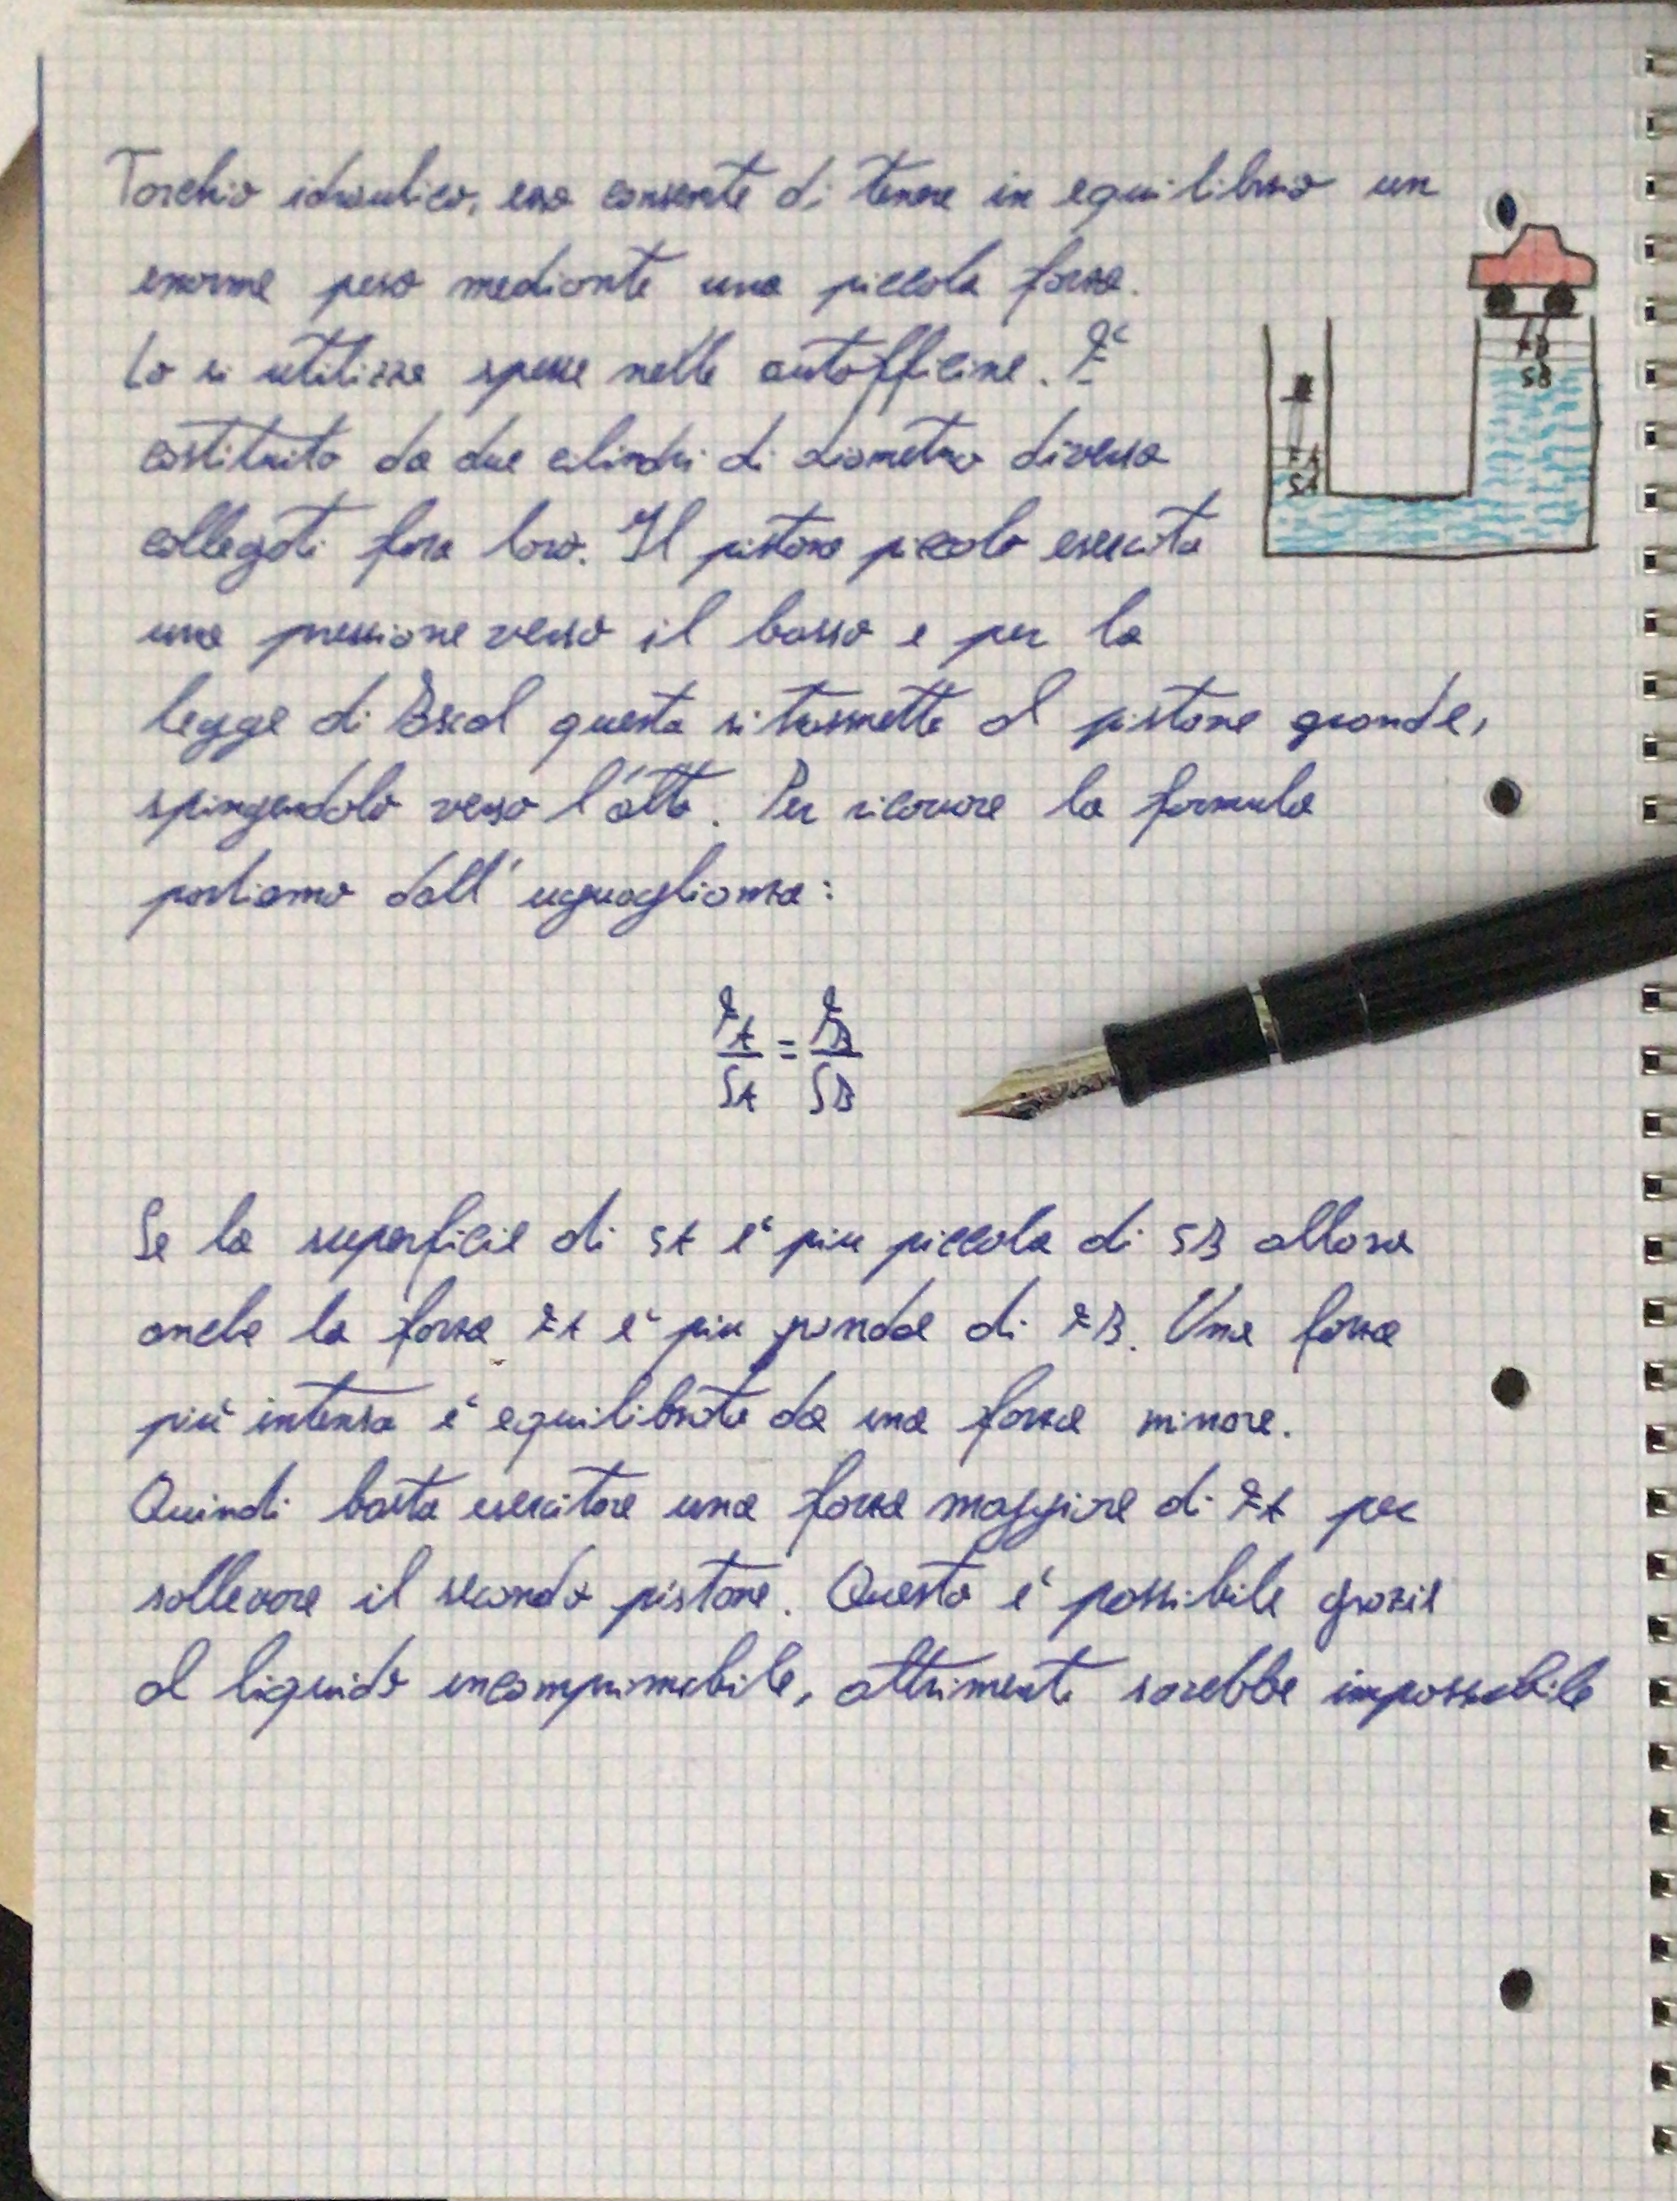 Torchio idraulico, esso consente di tenere in equilibrio un
enorme peso mediante una piccola forza.
Lo si utilizza spesse nelle autofficine. È
costituito da due cilindri di diametro diverso
collegati fora loro. Il pistone piccolo esercita
una pressione verso il basso e per la
legge di questa si trasmette al pistone grande,
spingendolo verso l'alto. Per ricavare la formula
partiamo dall'uguaglianza:
FA = FB
SA SB
Se la superficie di SA è piu piccola di SB allora
anche la forza FA è piu di FB. Una forza
più intensa è equilibrata da una forza minore.
Quindi basta esercitare una forza maggiore di FA per
sollevare il secondo pistone. Questo è possibile grazie
al liquido incomprimibile, altrimenti sarebbe impossibile
FB
SB
FA
SA